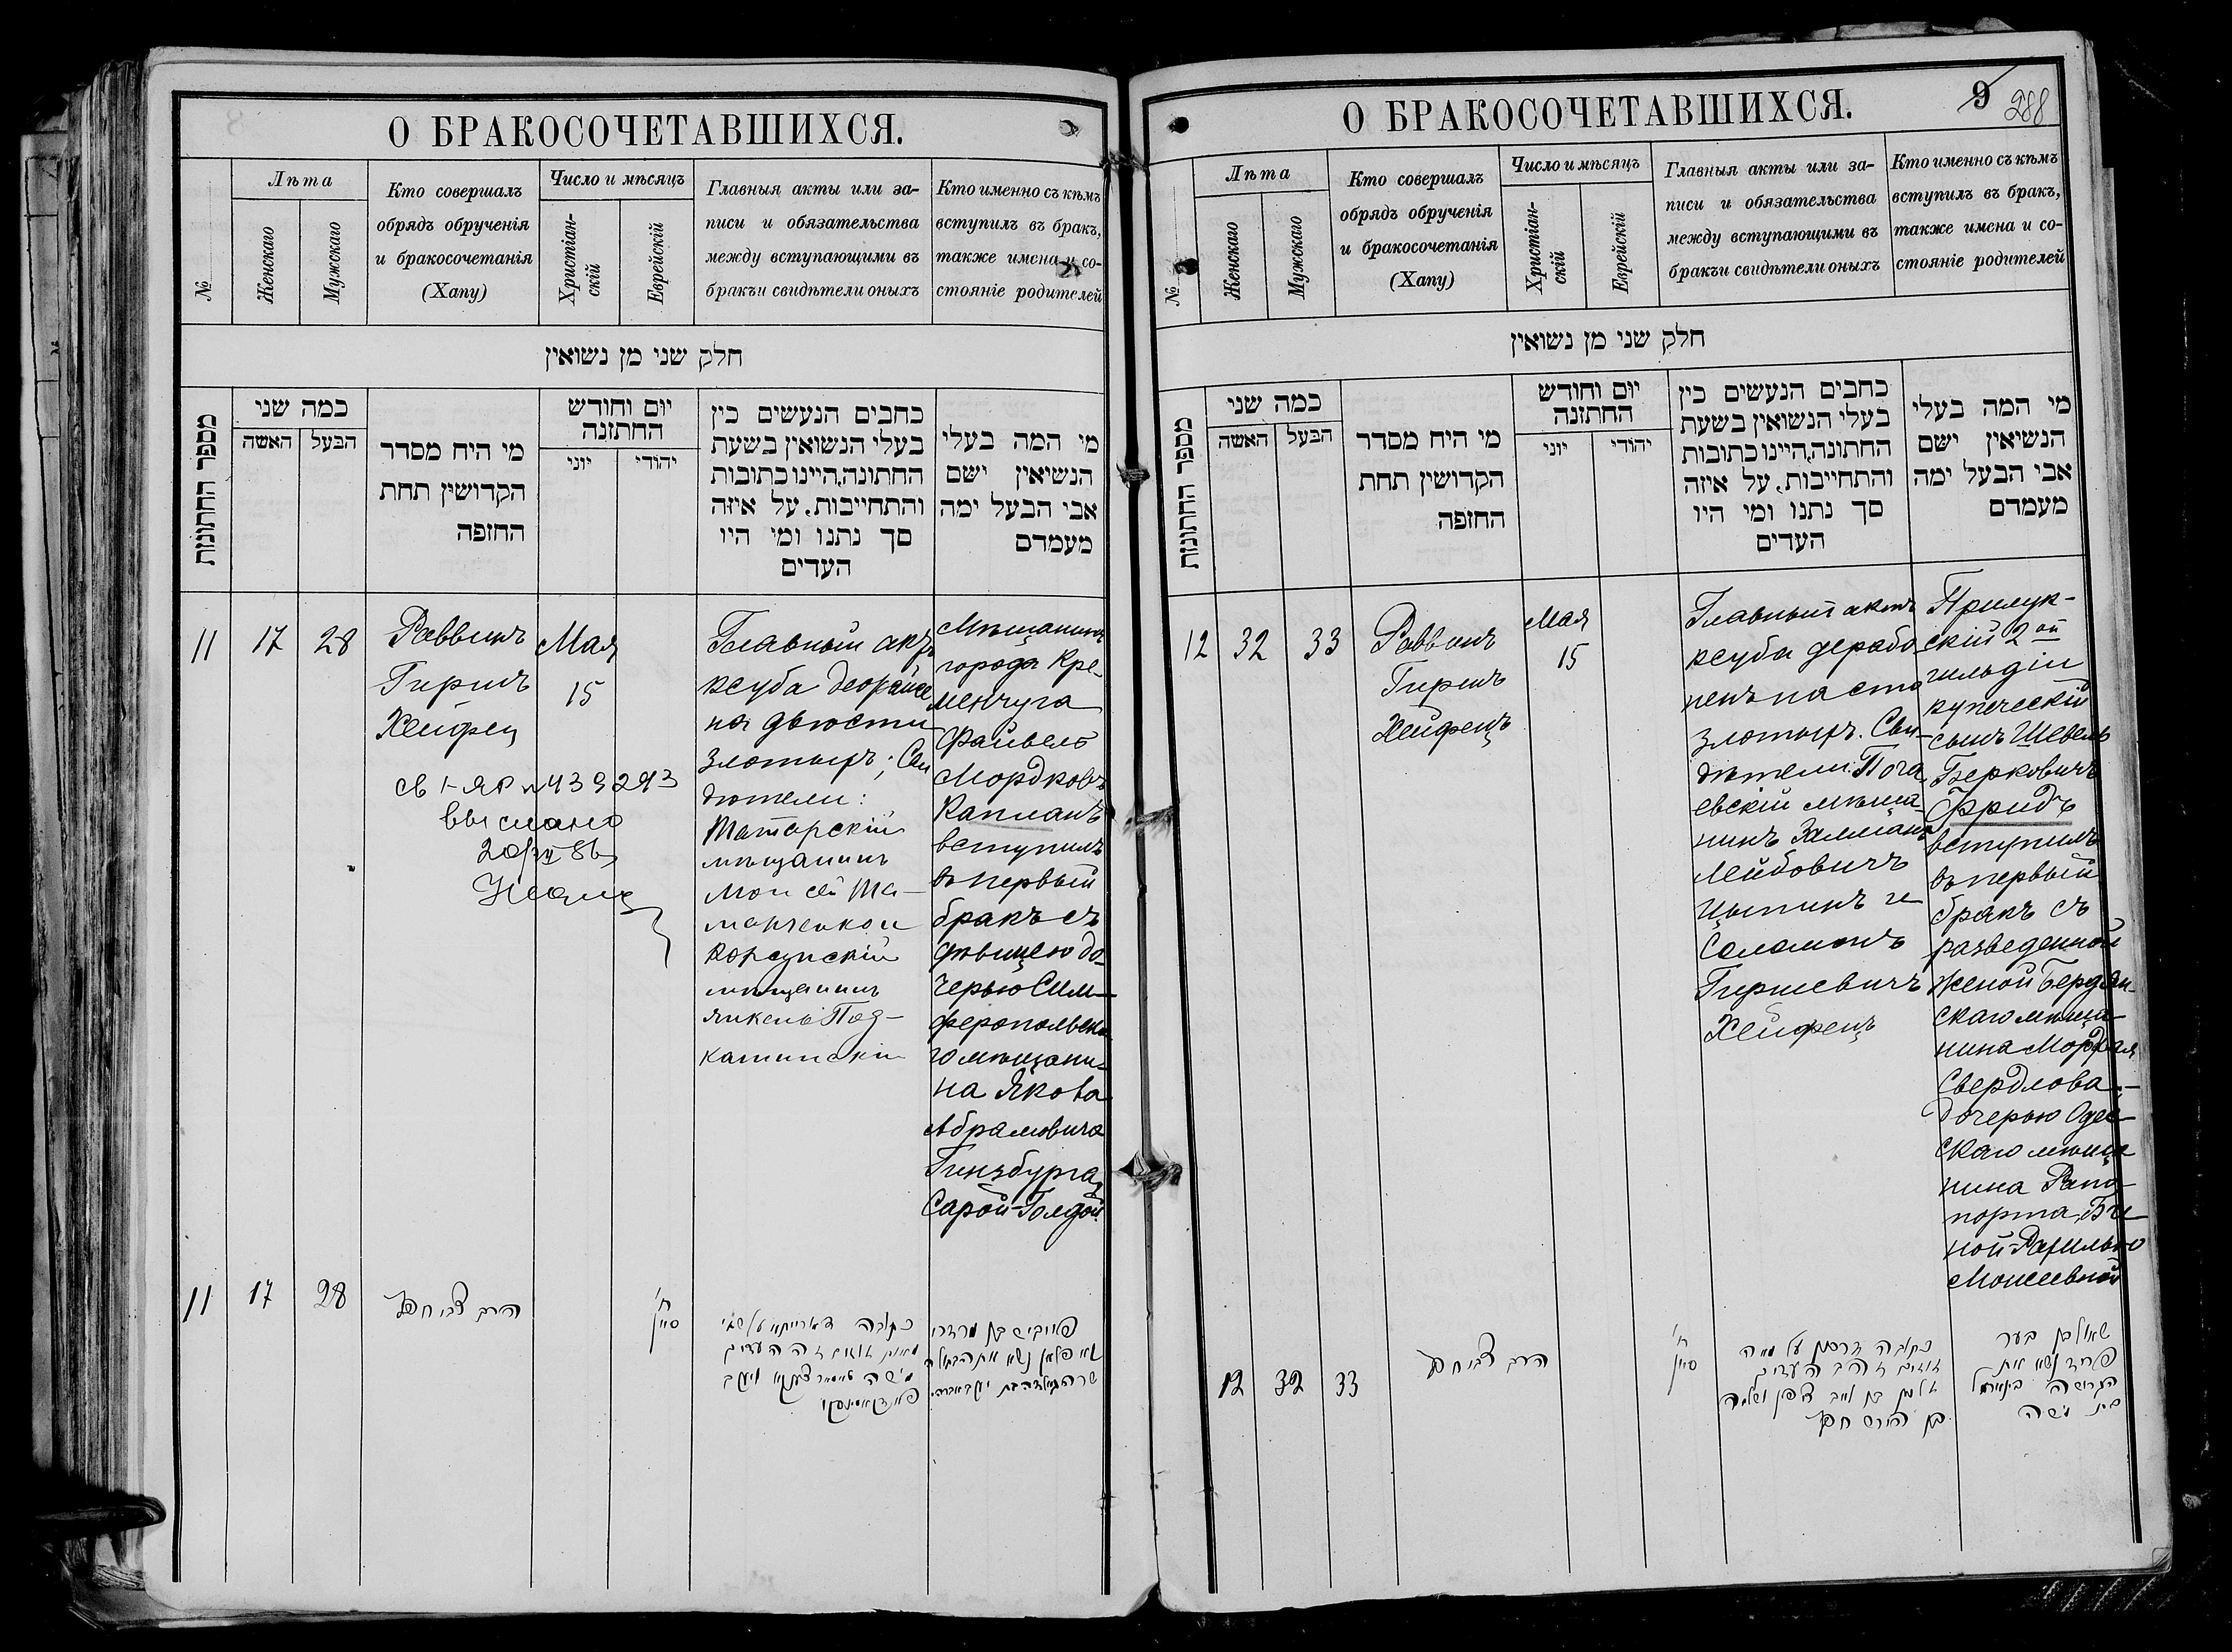 О БРАКОСОЧЕТАВШИХСЯ.
№
Лѣта
Женскаго
Мужскаго
Кто совершалъ
обрядъ обрученія
и бракосочетанія
(Хапу)
Число и мѣсяцъ
Христіан-
скій
Еврейскій
Главныя акты или за-
писи и обязательства
между вступающими въ
бракъи свидѣтели оныхъ
Кто именно съ кѣмъ
вступилъ въ бракъ,
также имена и со-
стояніе родителей
חלק שני מן נשואין
מספר החתונות
כמה שני
האשה
הבעל
מי היח מסדר
הקדושין תחת
החופה
יום וחודש
החתונה
יוני
יהודי
כחבים הנעשים כין
בעלי הנשואין בשעת
החתונה,היינו כתובות
והתחייבות, על איזה
סך נתנו ומי היו
העדים
מי המה בעלי
הנשיאין ישם
אבי הבעל ימה
מעמדם
11
17
28
Раввинъ
Гиршъ
Хейфец
Мая
15
Главный актъ
ксуба деорайсе
на двѣсти
злотыхъ; Сви
дѣтели:
Татарскій
мѣщанинъ
Моисей Та-
манченко и
Корсунскій
мѣщанинъ
Янкель Под-
каминскій
Мѣщанинъ
города Кре-
менчуга
Файвель
Мордковъ
Капланъ
вступилъ
въ первый
бракъ съ
дѣвицею до-
черью Сим-
феропольска
го мѣщани-
на Якова
Абрамовича
Гинзбурга,
Сарой-Голдой
св 1-
439 293
выслано
11
17
28
הרב צבי חפץ
ח'
סיון
כתובה דאורייתא על שתי
מאות זהו' וזה העדים
פייביש בן מרדכי
קאפלאן נשא את הבתולה
О БРАКОСОЧЕТАВШИХСЯ.
9
288
№
Лѣта
Женскаго
Мужскаго
Кто совершалъ
обрядъ обрученія
и бракосочетанія
(Хапу)
Число и мѣсяцъ
Христіан-
скій
Еврейскій
Главныя акты или за-
писи и обязательства
между вступающими въ
бракъи свидѣтели оныхъ
Кто именно съ кѣмъ
вступилъ въ бракъ,
также имена и со-
стояніе родителей
חלק שני מן נשואין
מספר החתונות
כמה שני
האשה
הבעל
מי היח מסדר
הקדושין תחת
החופה
יום וחודש
החתונה
יוני
יהודי
כחבים הנעשים כין
בעלי הנשואין בשעת
החתונה,היינו כתובות
והתחייבות, על איזה
סך נתנו ומי היו
העדים
מי המה בעלי
הנשיאין ישם
אבי הבעל ימה
מעמדם
12
32
33
Раввинъ
Гиршъ
Хейфецъ
Мая
15
Главный актъ
ксуба дерабо
ненъ на сто
злотыхъ. Сви-
дѣтели: Пога
евскій мѣща-
нинъ Залманъ
Лейбовичъ
Цыпинъ и
Саламонъ
Гиршевичъ
Хейфецъ
Прилук-
скій 2ой
гильдіи
купеческій
сынъ Шевель
Берковичъ
Фридъ
вступилъ
въ первый
бракъ съ
разведенной
женой Бердян-
скаго мѣща-
нина Мордхая
Свердлова,-
дочерью Одес-
скаго мѣща-
нина Рапо-
порта, Бе-
ной-Рахилью
Моисеевной
12
32
33
הרב צבי חפץ
ח'
סיון
כתובה דרבנן על מאה
זהובים וזה העדים
זלמן בן לייב ציפין ושלמה
בן הירש חפץ
שאול בן בער
פריד נשא את
הגרושה
בת משה